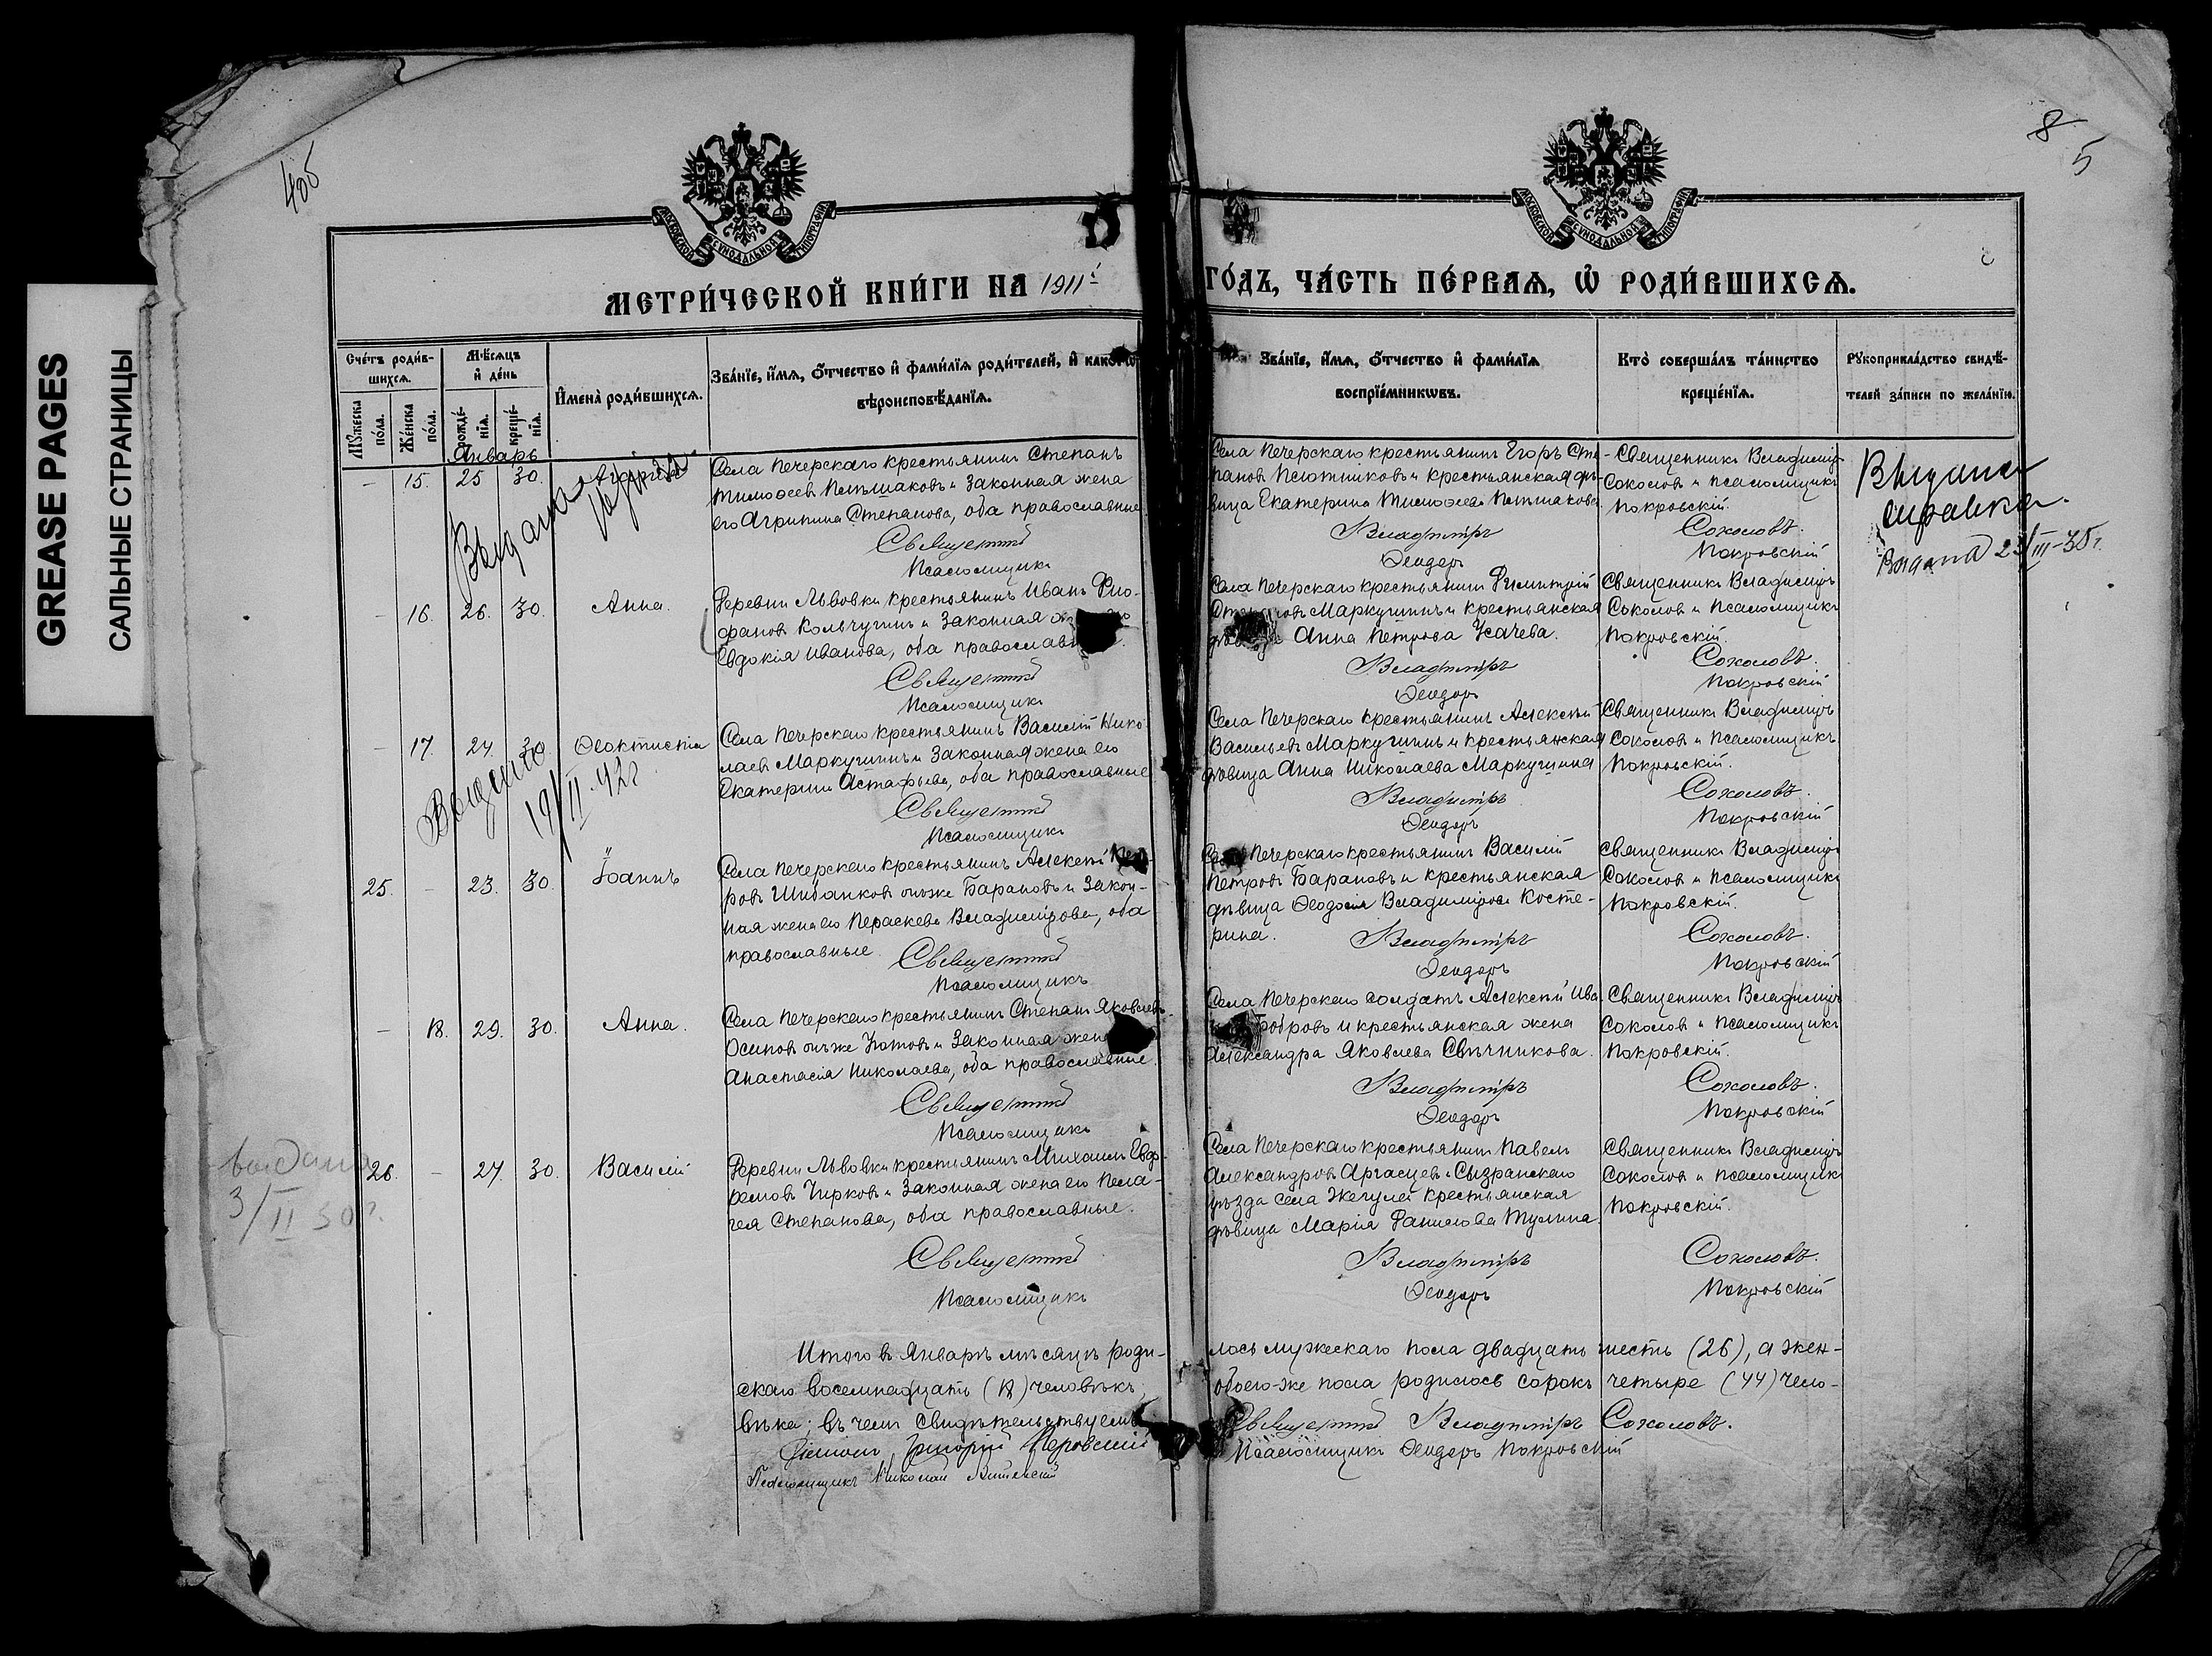 GREASE PAGES
САЛЬНЫЕ СТРАНИЦЫ
8
5
МОСКОВСКОЙ СѴНОДАЛЬНОЙ ТИПОГРАФІИ
МОСКОВСКОЙ СѴНОДАЛЬНОЙ ТИПОГРАФІИ
МЕТРИ́ЧЕСКОЙ КНИ́ГИ НА 1911 ГО́ДЪ, ЧА́СТЬ ПЕ́РВАѦ, Ѡ҆ РОДИ́ВШИХСѦ.
Сче́тъ роди́в-
шихсѧ.
Мꙋ́жеска по́ла.
Же́нска по́ла.
Мѣ́сѧцъ и҆ де́нь
рожде́-нїѧ.
креще́-нїѧ.
И҆мена̀ роди́вшихсѧ.
Зва́нїе, и҆́мѧ, ѻ҆́тчество и҆ фами́лїѧ роди́телей, и҆ како́гѡ
вѣроисповѣ́данїѧ.
Зва́нїе, и҆́мѧ, ѻ҆́тчество и҆ фами́лїѧ
воспрїе́мникѡвъ.
Кто̀ соверша́лъ та́инство
креще́нїѧ.
Рꙋкоприкла́дство свидѣ́-
телей за́писи по жела́нїю.
Январь
- 15. 25 30.
Села Печерскаго крестьянинъ Степанъ
Тимофеевъ Пельшаковъ и законная жена
его Агрипина Степанова, оба православные
Священникъ
Псаломщикъ
Села Печерскаго крестьянинъ Егоръ Сте-
пановъ Плотниковъ и крестьянская дѣ-
вица Екатерина Тимофеева Пельшакова
Владимиръ
Ѳеодоръ
Священникъ Владиміръ
Соколовъ и псаломщикъ
Покровскій.
Соколовъ.
Покровскій
Выдана
справка.
Выдана 23/III-35г.
Выдана
- 16. 26. 30. Анна.
Деревни Львовки крестьянинъ Иванъ Ѳео-
фановъ Кольчугинъ и законная
Евдокія Иванова, оба православ
Священникъ
Псаломщикъ
Села Печерскаго крестьянинъ Димитрій
Маркушинъ и крестьянская
Анна Петрова Усачева.
Владимиръ
Ѳеодоръ
Священникъ Владиміръ
Соколовъ и псаломщикъ
Покровскій.
Соколовъ.
Покровскій
- 17. 24 30. Ѳеоктистія
Села Печерскаго крестьянинъ Василій Нико-
лаевъ Маркушинъ и законная жена его
Екатерина Астафьева, оба православные
Священникъ
Псаломщикъ
Села Печерскаго крестьянинъ Алексѣй
Васильевъ Маркушинъ и крестьянская
дѣвица Анна Николаева Маркушина
Владимиръ
Ѳеодоръ
Священникъ Владиміръ
Соколовъ и псаломщикъ
Покровскій.
Соколовъ.
Покровскій
Выдано
19/II-42г
25. - 23. 30. Іоаннъ
Села Печерскаго крестьянинъ Алексѣй Пет-
ровъ Шибанковъ онъ же Барановъ и закон-
ная жена его Параскева Владимірова, оба
православные.
Священникъ
Псаломщикъ
Села Печерскаго крестьянинъ Василій
Петровъ Барановъ и крестьянская
дѣвица Ѳеодосія Владимірова Косте-
рина.
Владимиръ
Ѳеодоръ
Священникъ Владиміръ
Соколовъ и псаломщикъ
Покровскій.
Соколовъ.
Покровскій
- 18. 29. 30. Анна.
Села Печерскаго крестьянинъ Степанъ Яковлевъ
Осиповъ онъ же Котовъ и законная жена
Анастасія Николаева, оба православные.
Священникъ
Псаломщикъ
Села Печерскаго солдатъ Алексѣй Ива-
Бобровъ и крестьянская жена
Александра Яковлева Свѣчникова.
Владимиръ
Ѳеодоръ
Священникъ Владиміръ
Соколовъ и псаломщикъ
Покровскій.
Соколовъ.
Покровскій
выдана
3/II 50г.
26. - 27. 30. Василій
Деревни Львовки крестьянинъ Михаилъ Евф-
ремовъ Чирковъ и законная жена его Пела-
гея Степанова, оба православные.
Священникъ
Псаломщикъ
Села Печерскаго крестьянинъ Павелъ
Александровъ Аргасцевъ и Сызранскаго
уѣзда села Жегулей крестьянская
дѣвица Марія Данилова Тулина.
Владимиръ
Ѳеодоръ
Священникъ Владиміръ
Соколовъ и псаломщикъ
Покровскій.
Соколовъ.
Покровскій
Итого въ Январѣ мѣсяцѣ роди-лось мужескаго пола двадцать шесть (26), а жен-
скаго восемнадцать (18) человѣкъ, обоего-же пола родилось сорокъ четыре (44) чело-
вѣка; въ чемъ свидѣтельствуемъ Священникъ Владимиръ Соколовъ.
Григорій Псаломщикъ Ѳеодоръ Покровскій
Псаломщикъ Николай